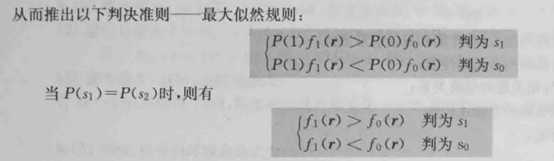 从而推出以下判决准则——最大似然规则:
{P(1)f₁(r)>P(0)f₀(r) 判为 s₁
P(1)f₁(r)<P(0)f₀(r) 判为 s₀
当 P(s₁)=P(s₂)时,则有
{f₁(r)>f₀(r) 判为 s₁
f₁(r)<f₀(r) 判为 s₀